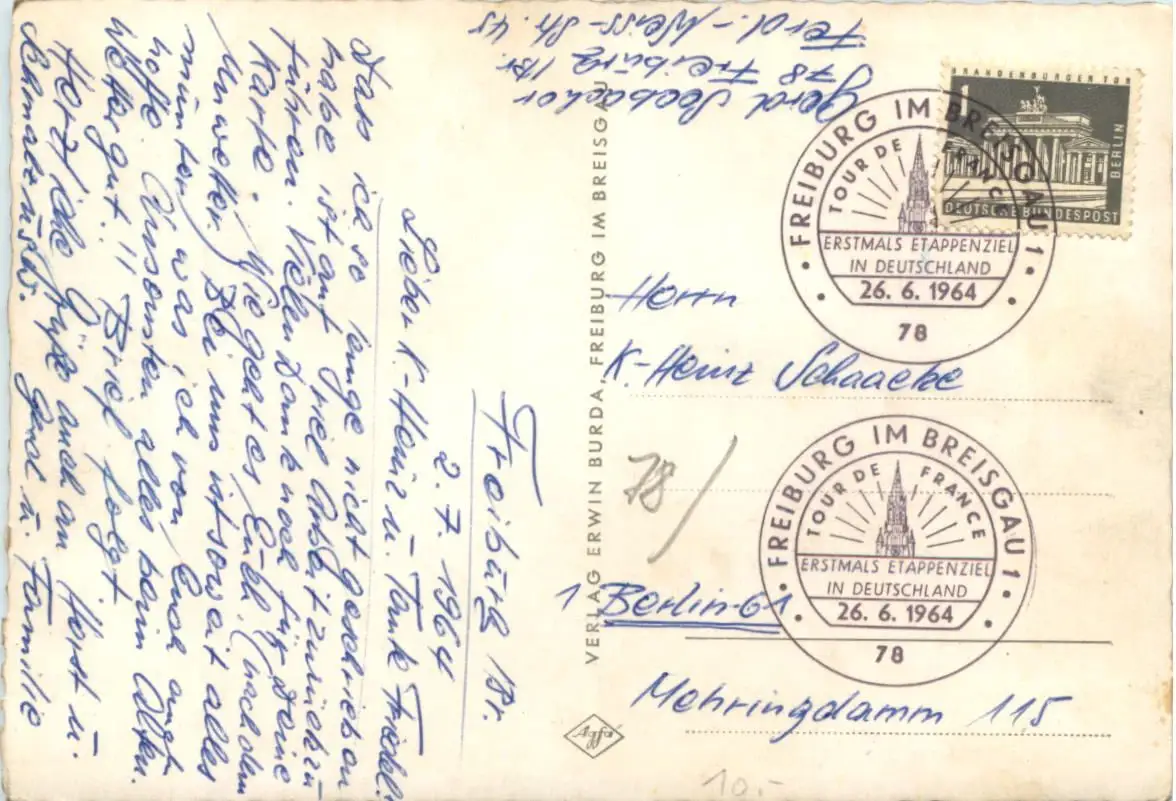 Gerd Seebacher
78 Freiburg /Br.
Ferd.-Weiss-Str. 45
Freiburg /Br.
2.7.1964
Lieber K-Heinz u. Tante Friedel!
Dass ich so lange nicht geschrieben
habe ist auf viel Arbeit zurückzu
führen. Vielen Dank noch für Deine
Karte. Wie geht es Euch (nach dem
Unwetter). Bei uns ist soweit alles
munter, was ich von Euch auch
hoffe. Ansonsten alles beim Alten.
Wetter gut!! Brief folgt
Herzliche Grüße auch an Horst u.
Gerd u. Familie
VERLAG ERWIN BURDA, FREIBURG IM BREISGAU
Agfa
BRANDENBURGER TOR
1
BERLIN
DEUTSCHE BUNDESPOST
FREIBURG IM BREISGAU 1
TOUR DE FRANCE
ERSTMALS ETAPPENZIEL
IN DEUTSCHLAND
26. 6. 1964
78
Herrn
K-Heinz Schaacke
78/
FREIBURG IM BREISGAU 1
TOUR DE FRANCE
ERSTMALS ETAPPENZIEL
IN DEUTSCHLAND
26. 6. 1964
78
1 Berlin-61
Mehringdamm 115
10.-